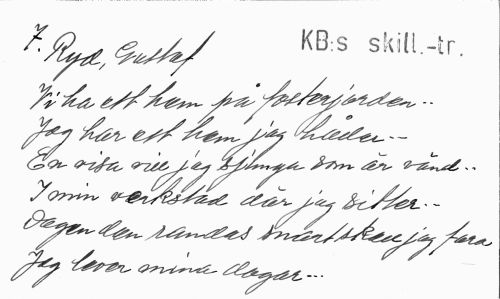 7.
Ryd, Gustaf
KB:s skill.-tr.
Vi ha ett hem på fosterjorden..
Jag har ett hem jag håller--
En visa vill jag sjunga som är vänd..
I min verkstad där jag sitter--
Dagen den randas snart skall jag fara
Jag lever mina dagar---